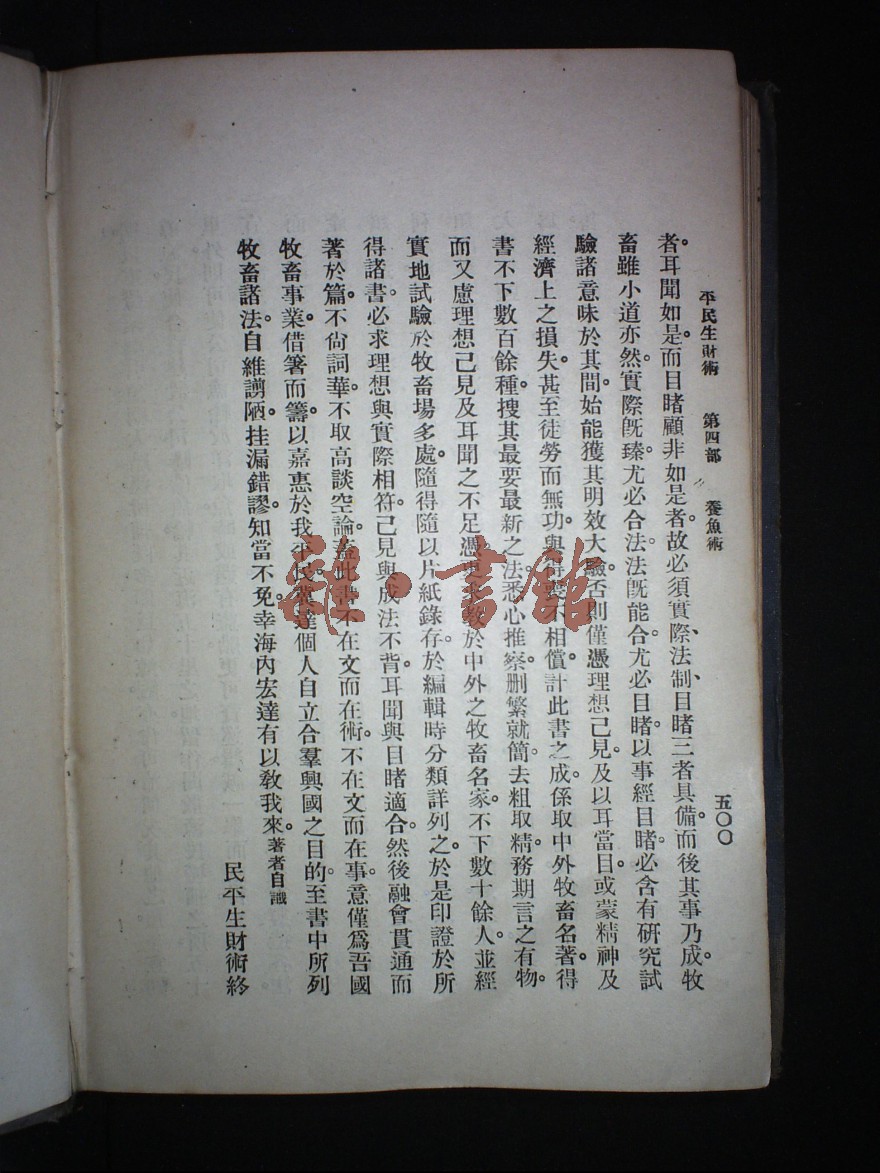 平民生財術　第四部　養魚術　五〇〇
者。耳聞如是。而目睹顧非如是者。故必須實際、法制、目睹三者具備。而後其事乃成。牧
畜雖小道亦然。實際既臻。尤必合法。法既能合。尤必目睹。以事經目睹。必含有研究試
驗諸意味於其間。始能獲其明效大驗。否則僅憑理想己見。及以耳當目。或蒙精神及
經濟上之損失。甚至徒勞而無功。與得喪不相償。計此書之成。係取中外牧畜名著。得
書不下數百餘種。搜其最要最新之法。悉心推察。删繁就簡。去粗取精。務期言之有物。
而又慮理想己見及耳聞之不足憑。更求教於中外之牧畜名家。不下數十餘人。並經
實地試驗於牧畜場多處。隨得隨以片紙錄存。於編輯時分類詳列之。於是印證於所
得諸書。必求理想與實際相符。己見與成法不背。耳聞與目睹適合。然後融會貫通而
著於篇。不尙詞華。不取高談空論。蓋此書不在文而在術。不在文而在事。意僅爲吾國
牧畜事業。借箸而籌。以嘉惠於我平民。冀達個人自立合羣興國之目的。至書中所列
牧畜諸法。自維謭陋。挂漏錯謬。知當不免。幸海內宏達有以敎我來。著者自識
民平生財術終
雜·書館